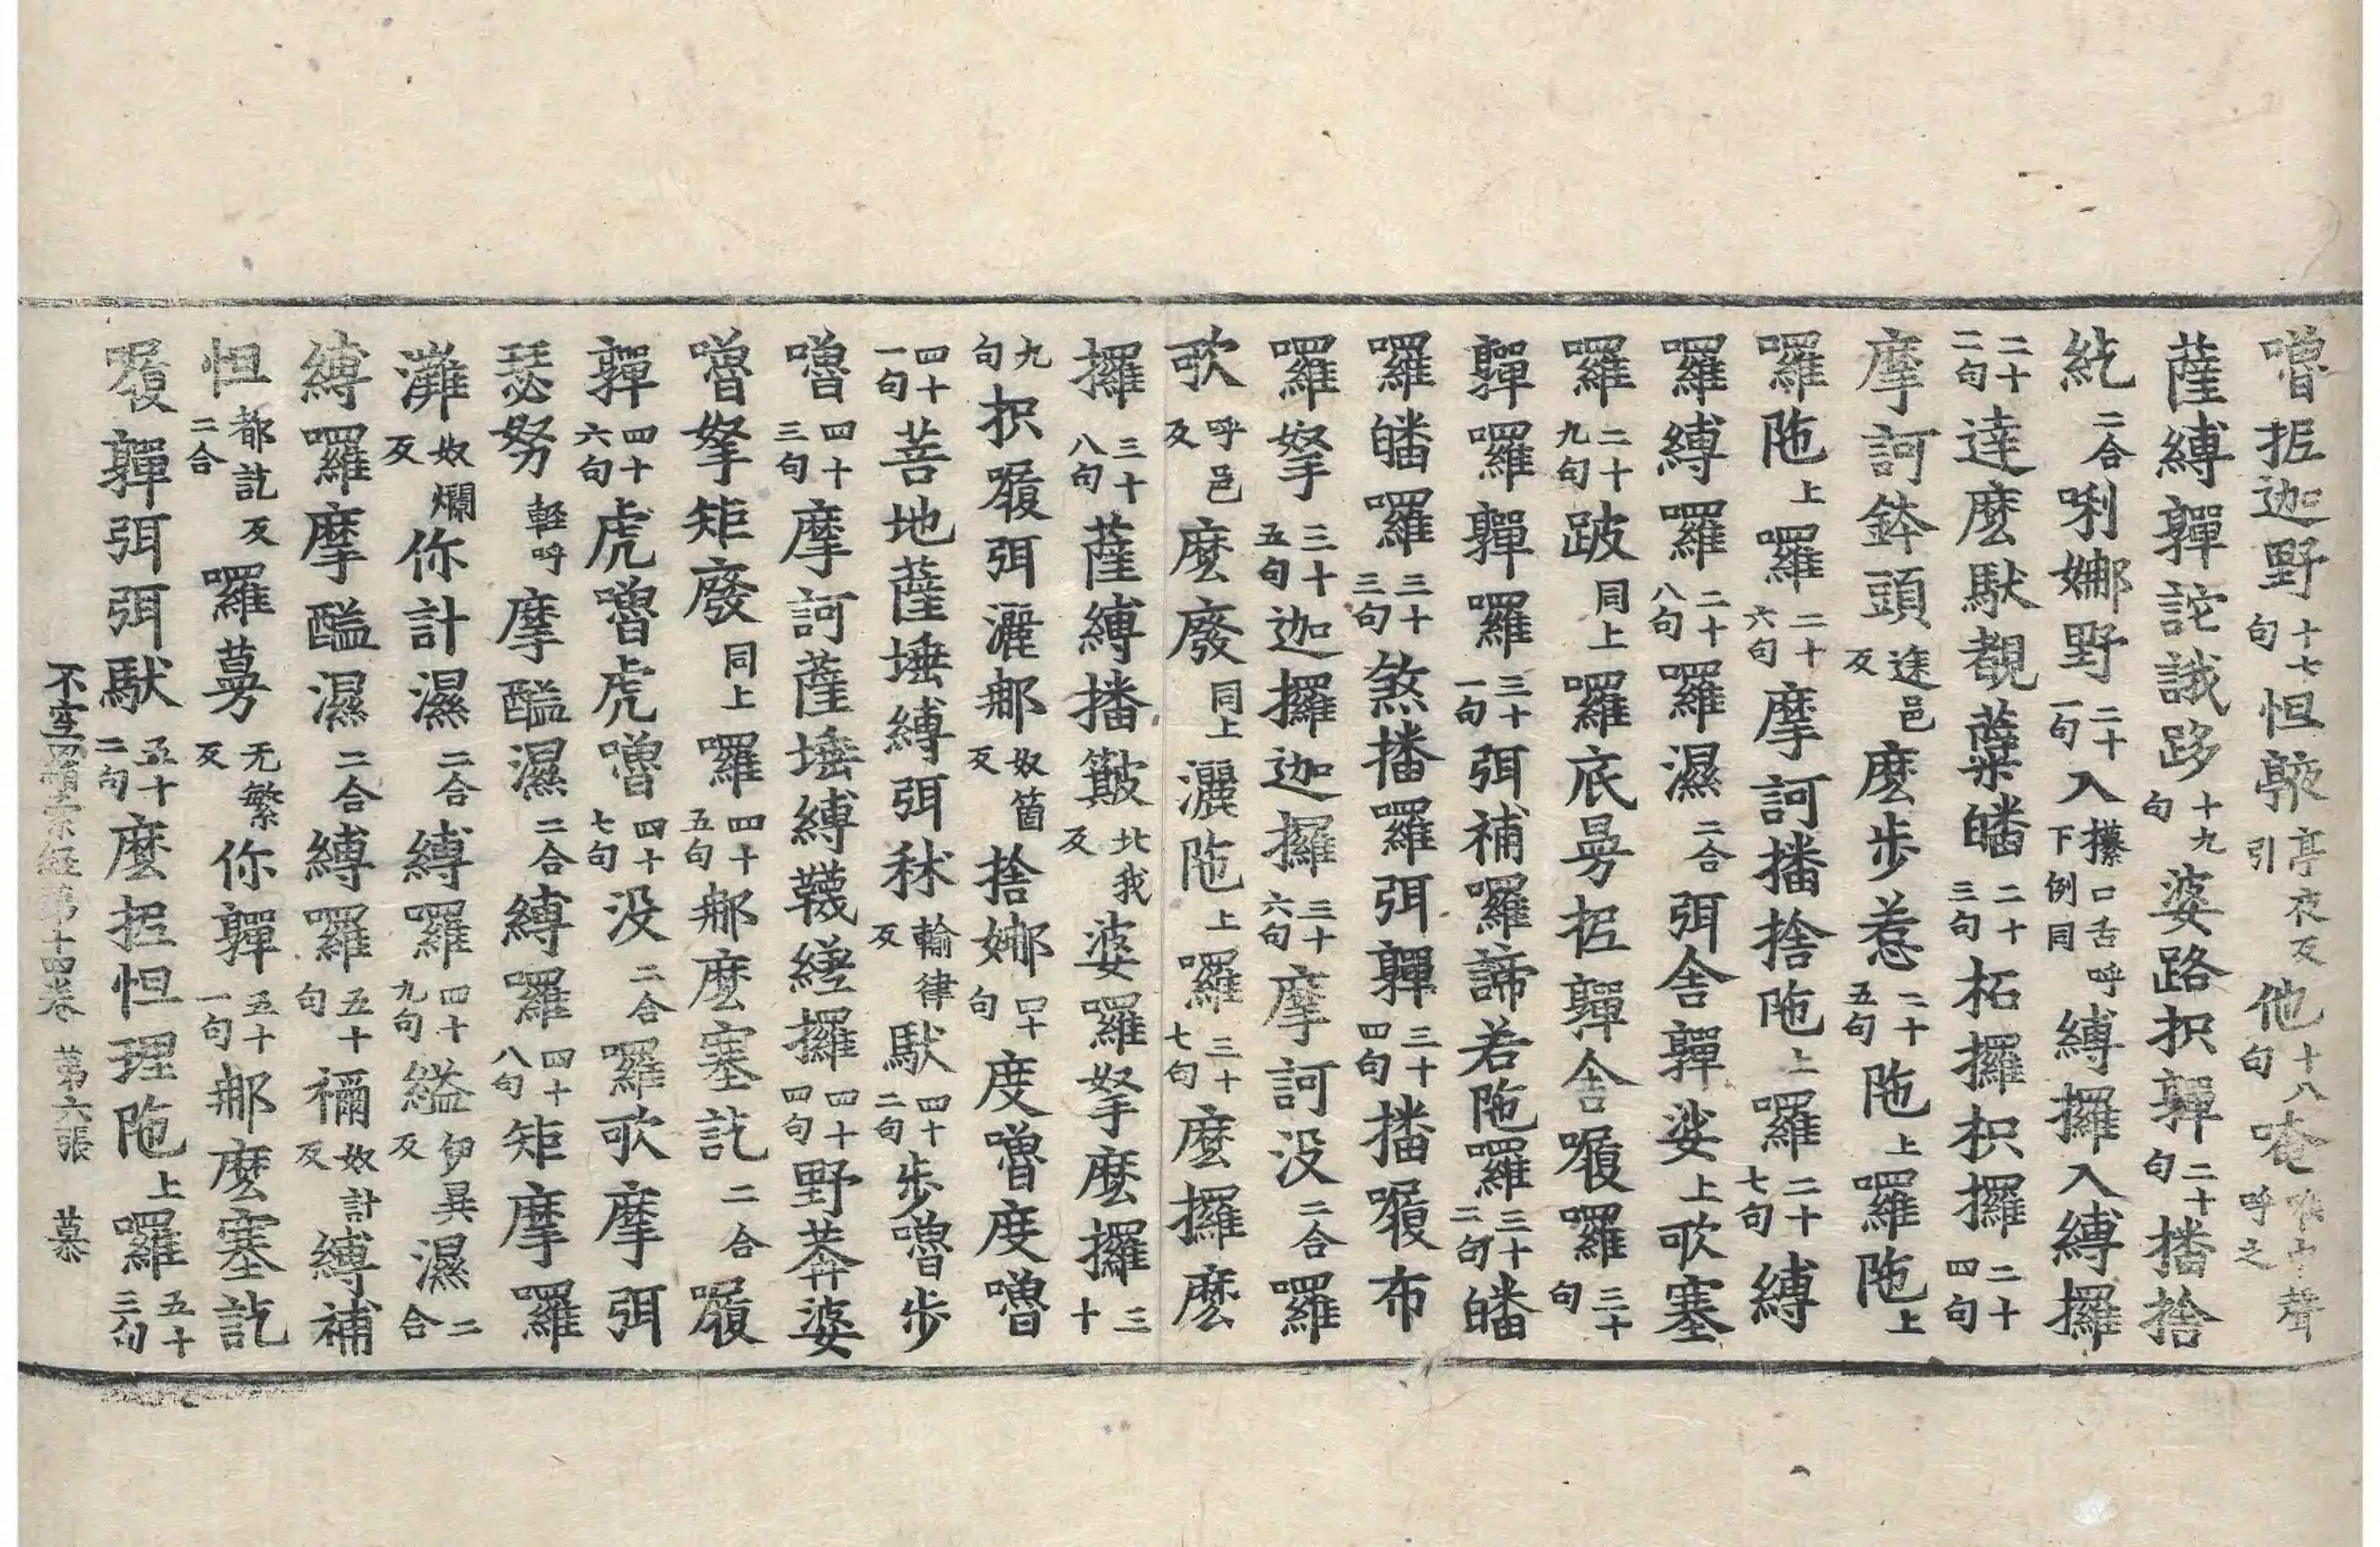 嚕抳迦野十七句怛𩕳亭夜反引他十八句唵喉中擡聲呼之
薩縛嚲詑誐跢十九句婆路枳嚲二十句播捨
紇二合唎娜野二十一句入攥口舌呼下例同縛攞入縛攞
二十二句達麼馱覩蘗皤二十三句柘攞枳攞二十四句
摩訶鉢頭途邑反麼步惹二十五句陁上羅陁上
囉陁上囉二十六句摩訶播捨陁上囉二十七句縛
羅縛囉二十八句囉濕二合弭舍嚲娑上歌塞
羅二十九句跛同上羅底曼抳嚲舍履羅三十句
嚲囉嚲囉三十一句弭補囉諦若陁羅三十二句皤
羅皤羅三十三句煞播羅弭嚲三十四句播㗚布
囉拏三十五句迦攞迦攞三十六句摩訶没二合羅
歌呼邑反麼廢同上灑陁上囉三十七句麼攞麼
攞三十八句薩縛播簸北我反婆囉拏麼攞三十
九句枳㗚弭灑郍奴箇反捨娜四十句度嚕度嚕
四十一句菩地薩埵縛弭秫輸律反馱四十二句步嚕步
嚕四十三句摩訶薩埵縛韈縒攞四十四句野莾婆
嚕拏矩廢同上囉四十五句郍麼塞訖二合㗚
嚲四十六句虎嚕虎嚕四十七句没二合囉歌摩弭
瑟努輕呼摩醯濕二合縛囉四十八句矩摩囉
灘奴爛反你計濕二合縛囉四十九句縊伊異反濕二合
縛囉摩醯濕二合縛囉五十句禰奴計反縛補
怛都訖反二合囉曼无繁反你嚲五十一句郍麼塞訖
㗚嚲弭弭馱五十二句麼抳怛理陁上囉五十三句
不空罥索經第十四卷　第六張　慕